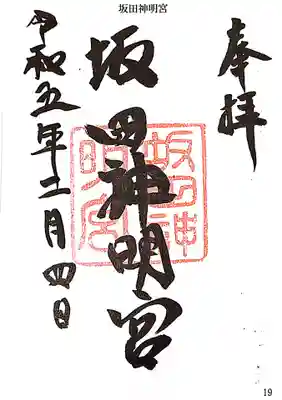 坂田神明宮
奉拝
坂田神明宮
令和五年二月四日
坂田神
明宮
19